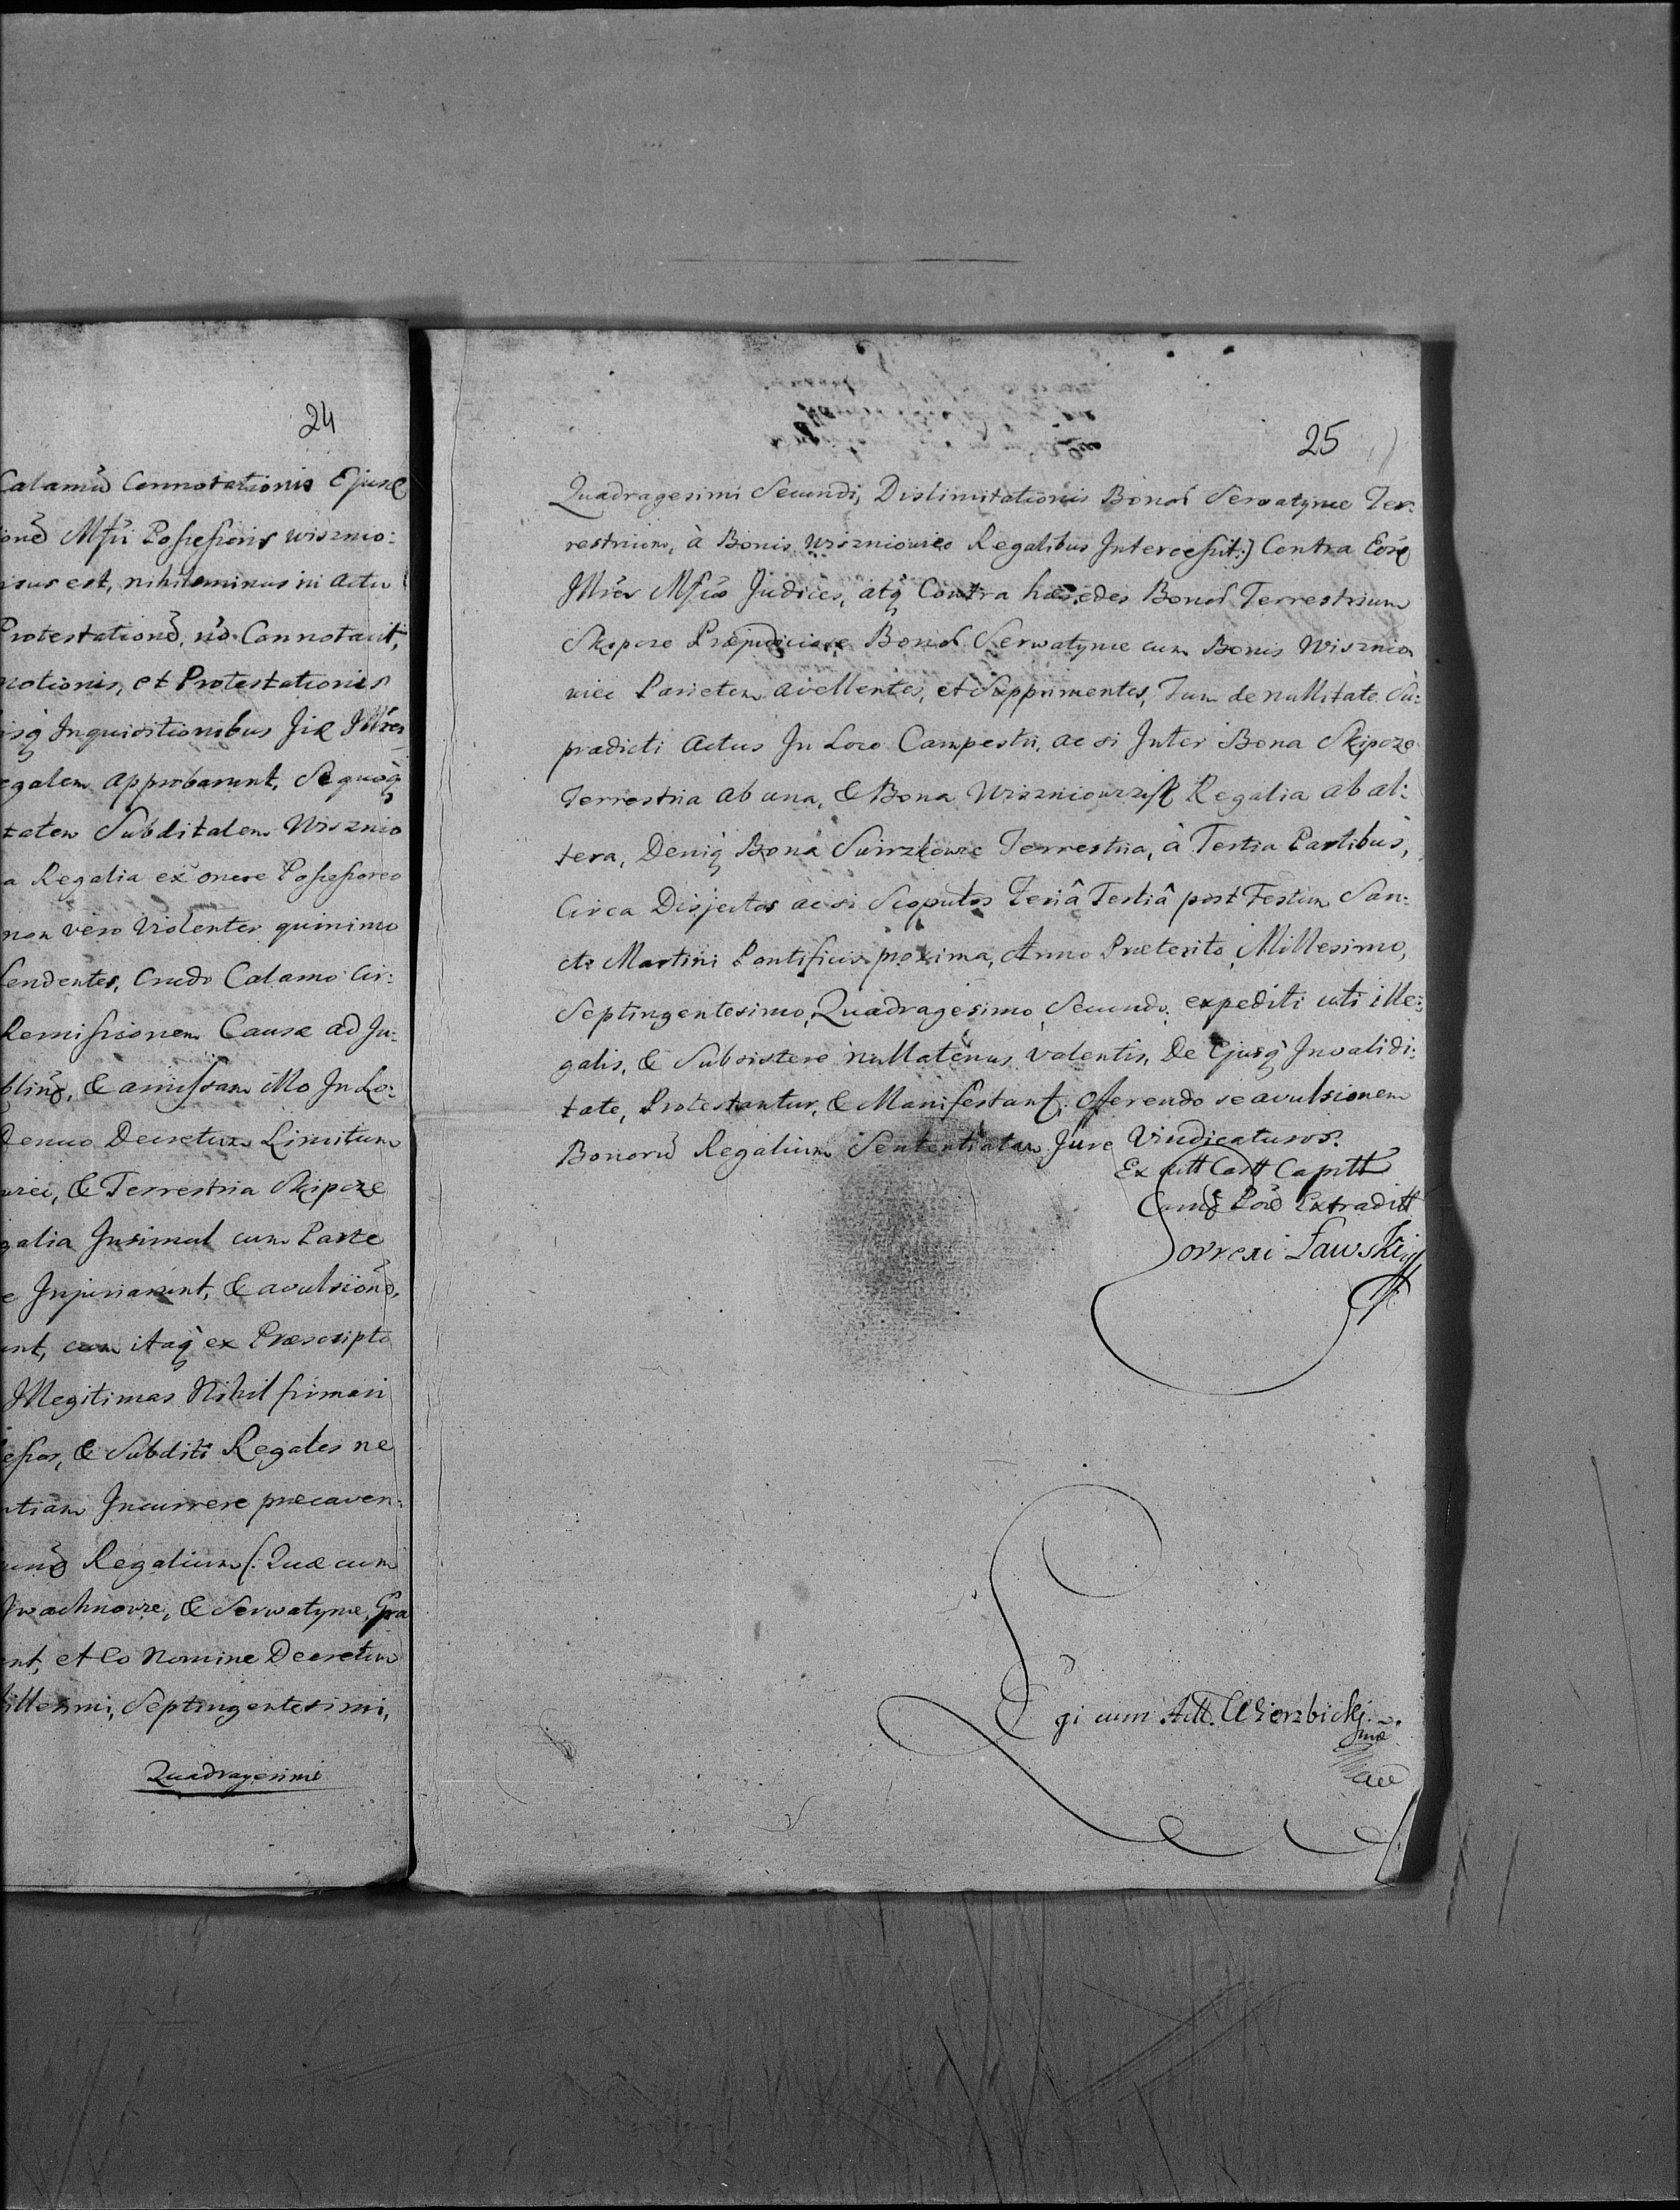 24
Calamũ Connotationis Ejusđ
Possessoris Wisznio:
isus est, nihilominus in actu
Protestationẽ, nõ Connotavit,
notionis, et Protestationis
isq̃ Inquisitionibus Jix Illres
egalem approbarunt, Sequoq̃
tatem Subditalem Wisznio
a Regalia ex onere Possessores
non vero Violenter quinimo
tendentes, Crudo Calamo Cir:
Remissionem Causæ ad Ju:
& amissam illo In Lo:
Denuo Decretum Limitum
wiec, & Terrestria Skipcze
galia Insimul cum Parte
e Injuriarunt, & avulsionẽ,
unt, cum itaq̃ ex Præscripto
Illegitimas Nihil firmari
essor, & Subditi Regales ne
ntiam Incurrere præcaven:
Regalium (: Quæ cum
Iwachnowce, & Serwatynce, Gra
ent, et Eo Nomine Decretum
Millesimi, Septingentesimi,
Quadragesimi
25
Quadragesimi Secundi, Dislimitationis Bonor Serwatynce Ter:
restrium, à Bonis Wiszniowiec Regalibus Intercessit:) Contra Eosđ
Illres Mfcos Judices, atq̃ Contra hæredes Bonor Terrestrium
Skipcze Præjudiciose Bonor Serwatynce cum Bonis Wisznio
wiec Parietem avellentes, et Supprimentes, Tum de nullitate Su:
prædicti Actus In Loco Campestri, ac si Inter Bona Skipcze
Terrestria ab una, & Bona Wiszniowczyk Regalia ab al:
tera, Deniq̃ Bona Swirzkowce Terrestria, à Tertia Partibus,
Circa Disjectos ac si Scopulos Feriâ Tertiâ post Festum San:
cti Martini Pontificis proxima, Anno Præterito, Millesimo,
Septingentesimo, Quadragesimo, Secundo, expediti uti ille:
galis, & Subsistere nullatenus valentis, De Ejusq̃ Invalidi:
tate, Protestantur, & Manifestant, Offerendo se avulsionem
Bonorũ Regalium Sententiatam Jure Vindicaturos.
Ex Actt Castt Capitt
Extraditt
Correxi Lawski
Legi cum Actt. Wierzbicki